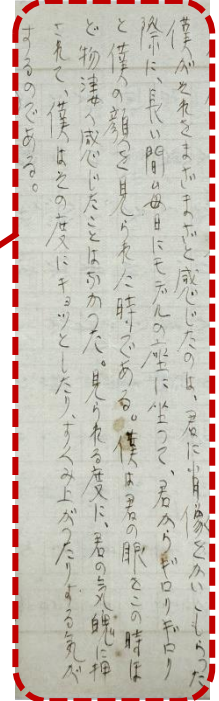 僕がそれをまざまざと感じたのは、君に肖像をかいてもらった
際に、長い間の毎日にモデルの座に坐って、君からギロリギロリ
と僕の顔を見られた時である。僕は君の眼をこの時ほ
ど物凄く感じたことはなかった。見られる度に、君の気魄に押
されて、僕はその度にギョッとしたり、すくみ上がったりする気が
するのである。